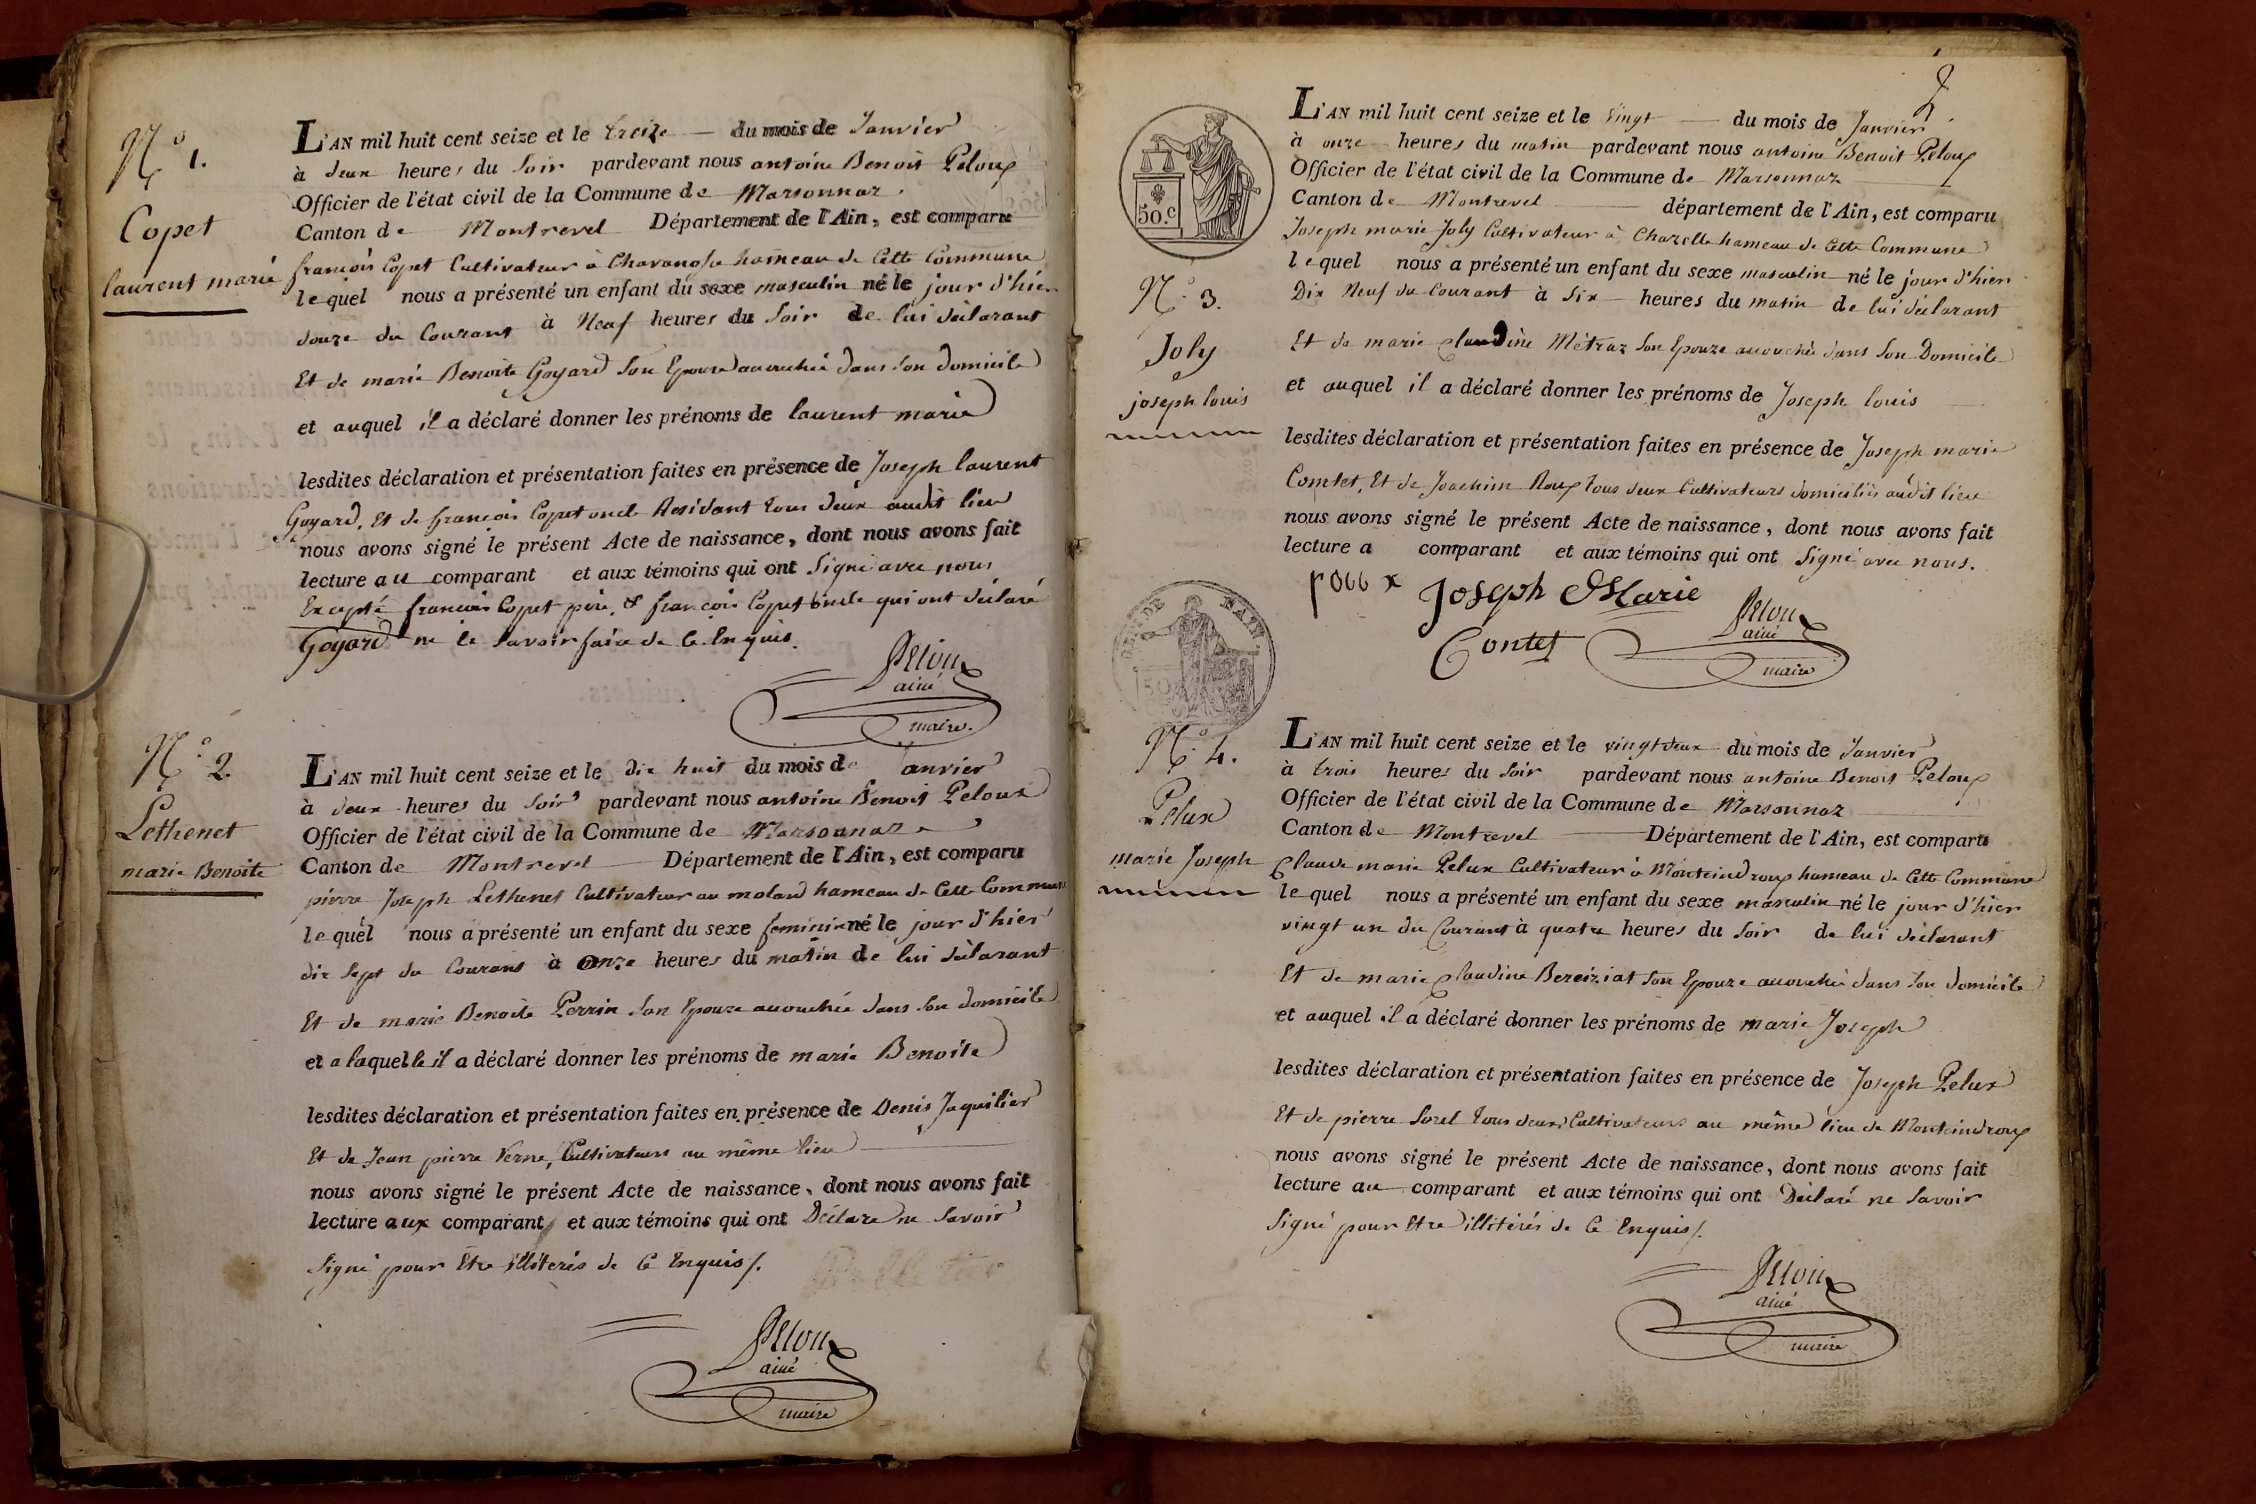 N.° 1.
Copet
laurent marie
L'AN mil huit cent seize et le treize du mois de Janvier
à deux heures du Soir pardevant nous antoine Benoit Peloux
Officier de l'état civil de la Commune de Marsonnaz
Canton de Montrevel Département de l'Ain, est comparu
françois Copet Cultivateur à Chavanosse hameau de Cette Commune
lequel nous a présenté un enfant du sexe masculin né le jour d'hier
douze du Courant à Neuf heures du Soir de lui déclarant
Et de marie Benoite Goyard Son Epouze accouchée dans Son domicile
et auquel il a déclaré donner les prénoms de laurent marie
lesdites déclaration et présentation faites en présence de Joseph laurent
Goyard, Et de françois Copet oncle Residant tous deux audit lieu
nous avons signé le présent Acte de naissance, dont nous avons fait
lecture au comparant et aux témoins qui ont Signé avec nous
Excepté françois Copet père, & françois Copet oncle qui ont déclaré
Goyard ne le Savoir faire de Ce Enquis.
Peloux
ainé
maire.
N.° 2.
Lethenet
marie Benoite
L'AN mil huit cent seize et le dix huit du mois de anvier
à deux heures du Soir pardevant nous antoine Benoit Peloux
Officier de l'état civil de la Commune de Marsonnaz
Canton de Montrevel Département de l'Ain, est comparu
pierre Joseph Lethenet Cultivateur au molard hameau de Cette Commune
lequel nous a présenté un enfant du sexe feminin né le jour d'hier
dix Sept du Courant à Onze heures du matin de lui déclarant
Et de marie Benoite Perrin Son Epouze accouchée dans Son domicile
et a laquelle il a déclaré donner les prénoms de marie Benoite
lesdites déclaration et présentation faites en présence de Denis Jaquilier
Et de Jean pierre Verne, Cultivateurs au même lieu
nous avons signé le présent Acte de naissance, dont nous avons fait
lecture aux comparant et aux témoins qui ont Déclaré ne Savoir
Signé pour Etre illiterés de Ce Enquis/.
Peloux
ainé
maire
2
50.c
N.° 3.
Joly
joseph louis
L'AN mil huit cent seize et le vingt du mois de Janvier
à onze heures du matin pardevant nous antoine Benoit Peloux
Officier de l'état civil de la Commune de Marsonnaz
Canton de Montrevel département de l'Ain, est comparu
Joseph marie Joly Cultivateur à Chazelle hameau de Cette Commune
lequel nous a présenté un enfant du sexe masculin né le jour d'hier
Dix Neuf du Courant à Six heures du matin de lui déclarant
Et de marie Claudine Métraz Son Epouze accouchée dans Son Domicile
et auquel il a déclaré donner les prénoms de Joseph louis
lesdites déclaration et présentation faites en présence de Joseph marie
Comtet, Et de Joachim Roux tous deux Cultivateurs domiciliés audit lieu
nous avons signé le présent Acte de naissance, dont nous avons fait
lecture a comparant et aux témoins qui ont Signé avec nous.
Joseph Marie
Contet
Peloux
ainé
maire
N.° 4.
Pelux
marie Joseph
L'AN mil huit cent seize et le vingt deux du mois de Janvier
à trois heures du Soir pardevant nous antoine Benoit Peloux
Officier de l'état civil de la Commune de Marsonnaz
Canton de Montrevel Département de l'Ain, est comparu
Claude marie Pelux Cultivateur à Monteindroux hameau de Cette Commune
lequel nous a présenté un enfant du sexe masculin né le jour d'hier
vingt un du Courant à quatre heures du Soir de lui déclarant
Et de marie Claudine Bereiziat Son Epouze accouchée dans Son domicile
et auquel il a déclaré donner les prénoms de marie Joseph
lesdites déclaration et présentation faites en présence de Joseph Pelux
Et de pierre Sorel tous deux Cultivateurs au même lieu de Monteindroux
nous avons signé le présent Acte de naissance, dont nous avons fait
lecture au comparant et aux témoins qui ont Déclaré ne Savoir
Signé pour Etre illitérés de Ce Enquis/.
Peloux
ainé
maire